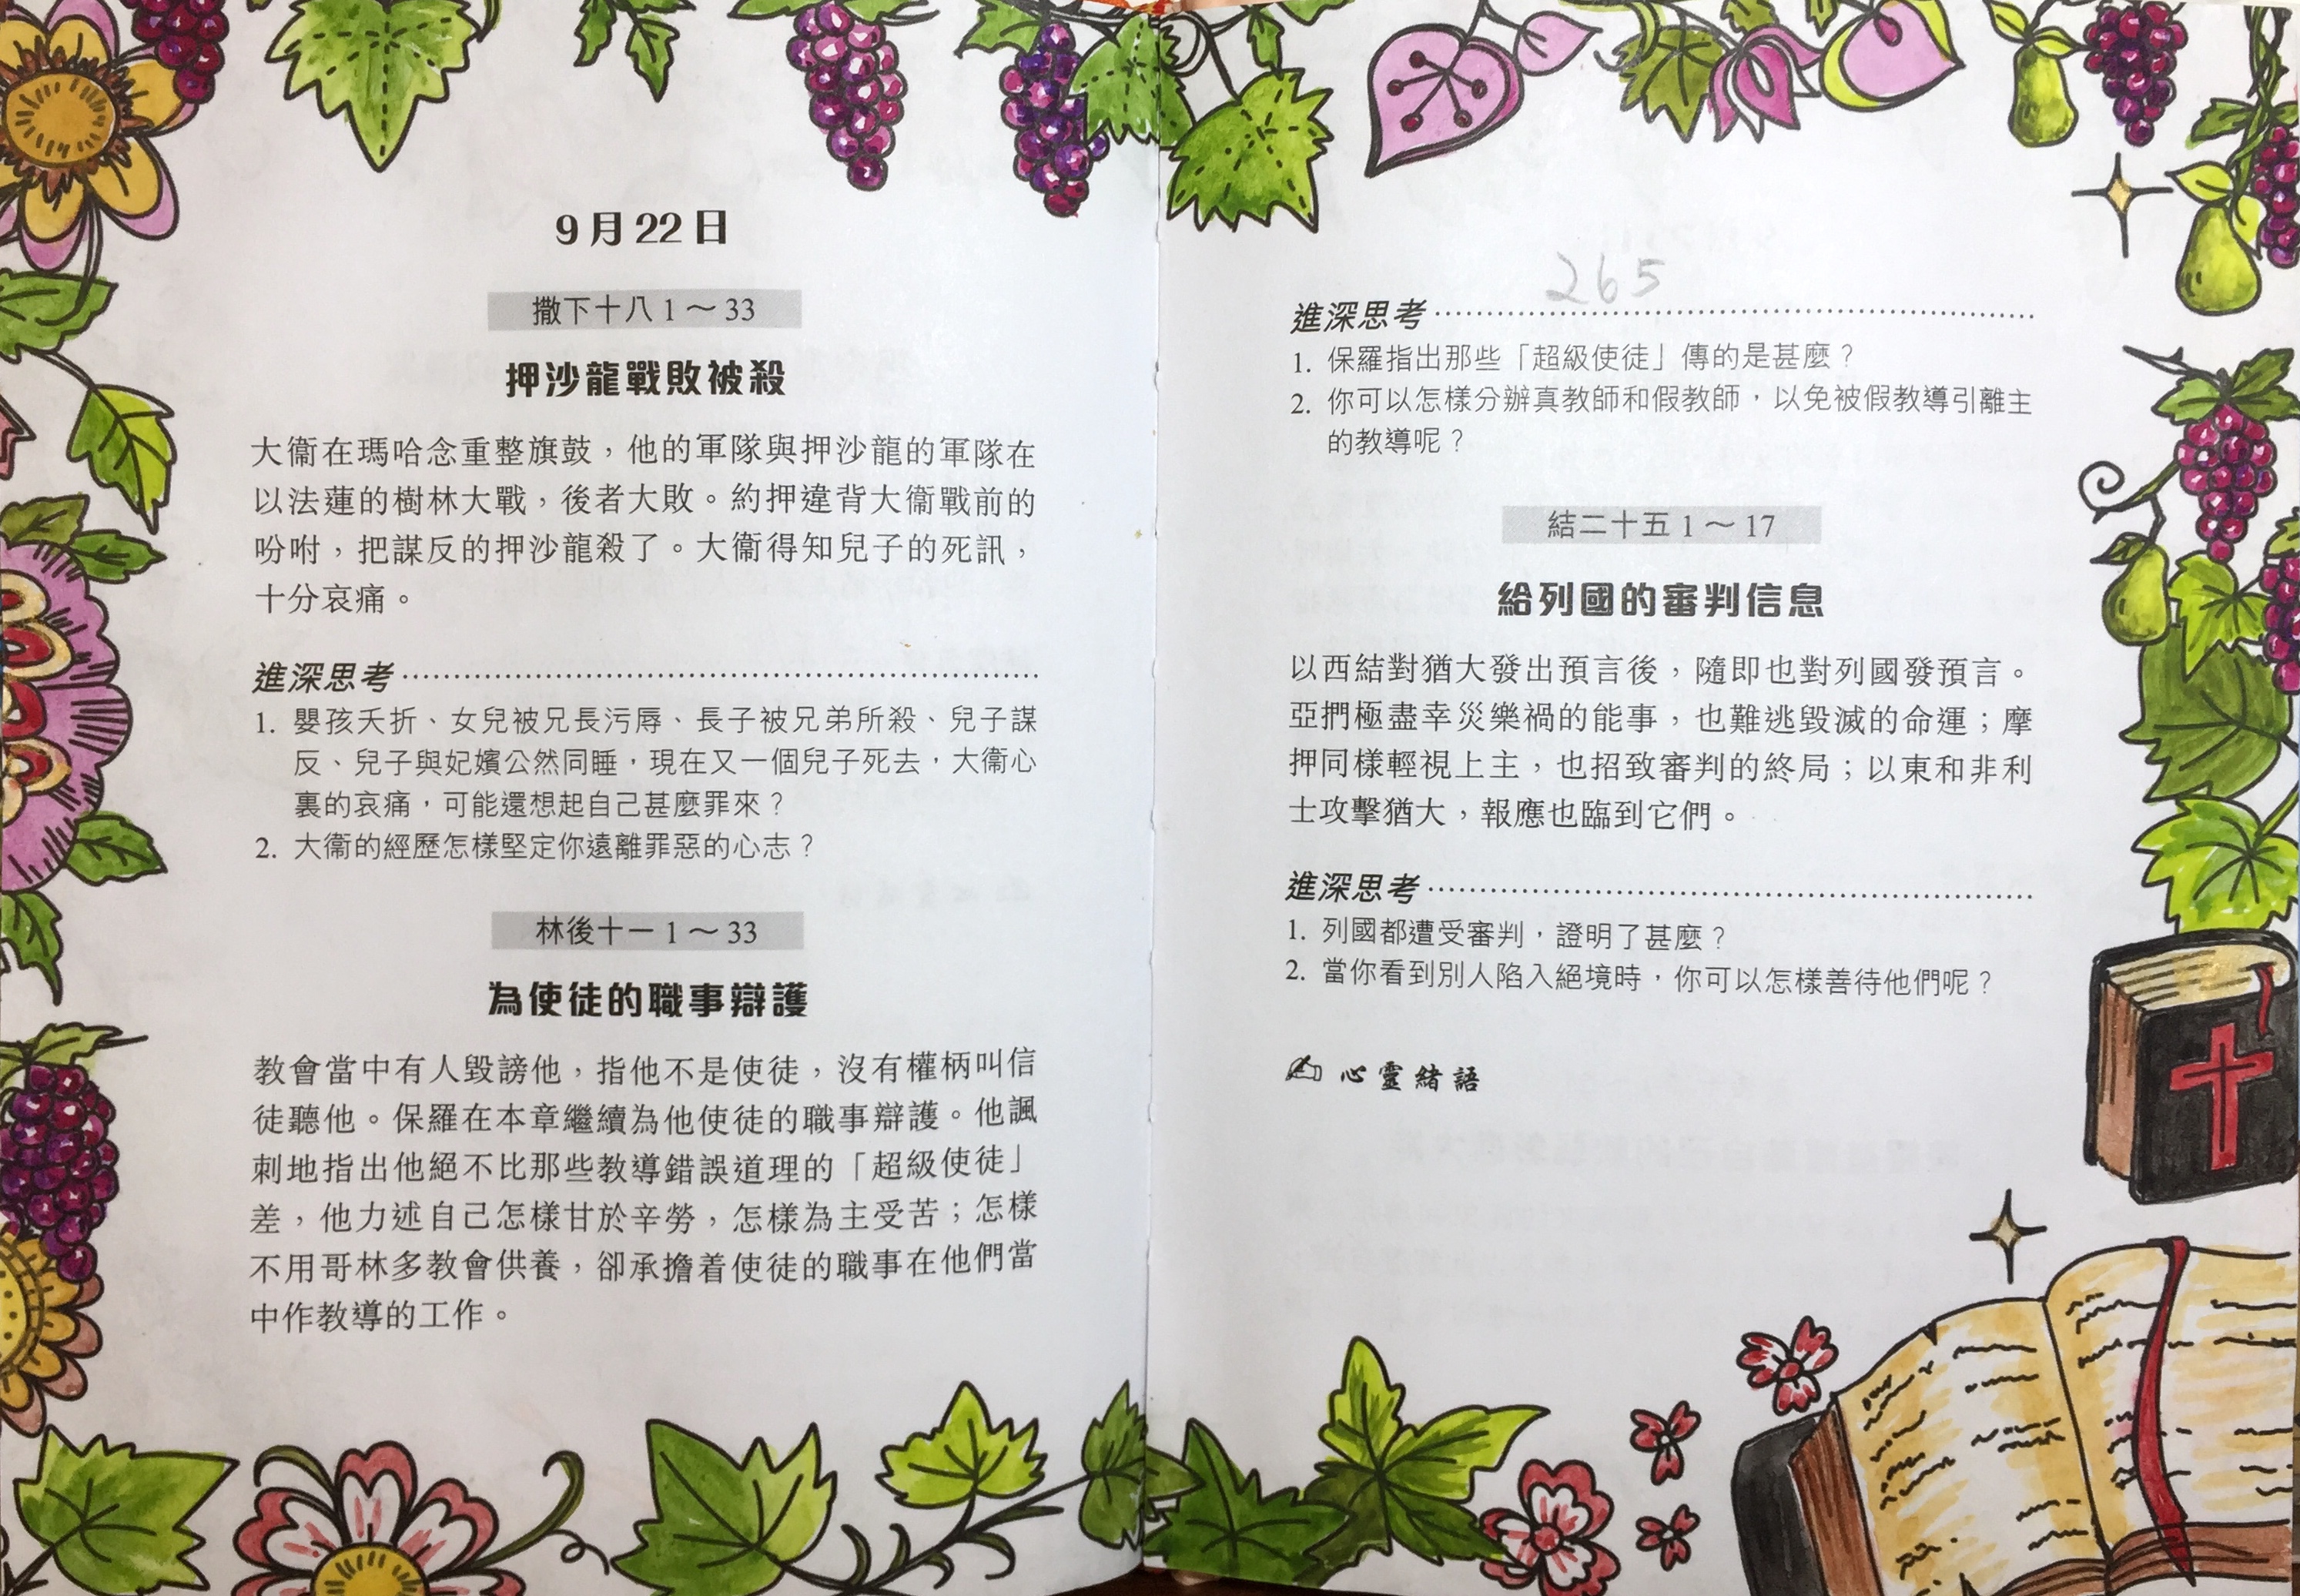 9月22日
撒下十八 1～33
押沙龍戰敗被殺
大衞在瑪哈念重整旗鼓，他的軍隊與押沙龍的軍隊在
以法蓮的樹林大戰，後者大敗。約押違背大衞戰前的
吩咐，把謀反的押沙龍殺了。大衞得知兒子的死訊，
十分哀痛。
進深思考
1. 嬰孩夭折、女兒被兄長污辱、長子被兄弟所殺、兒子謀
反、兒子與妃嬪公然同睡，現在又一個兒子死去，大衞心
裏的哀痛，可能還想起自己甚麼罪來？
2. 大衞的經歷怎樣堅定你遠離罪惡的心志？
林後十一 1～33
為使徒的職事辯護
教會當中有人毀謗他，指他不是使徒，沒有權柄叫信
徒聽他。保羅在本章繼續為他使徒的職事辯護。他諷
刺地指出他絕不比那些教導錯誤道理的「超級使徒」
差，他力述自己怎樣甘於辛勞，怎樣為主受苦；怎樣
不用哥林多教會供養，卻承擔着使徒的職事在他們當
中作教導的工作。
265
進深思考
1. 保羅指出那些「超級使徒」傳的是甚麼？
2. 你可以怎樣分辦真教師和假教師，以免被假教導引離主
的教導呢？
結二十五 1～17
給列國的審判信息
以西結對猶大發出預言後，隨即也對列國發預言。
亞捫極盡幸災樂禍的能事，也難逃毀滅的命運；摩
押同樣輕視上主，也招致審判的終局；以東和非利
士攻擊猶大，報應也臨到它們。
進深思考
1. 列國都遭受審判，證明了甚麼？
2. 當你看到別人陷入絕境時，你可以怎樣善待他們呢？
心靈緒語